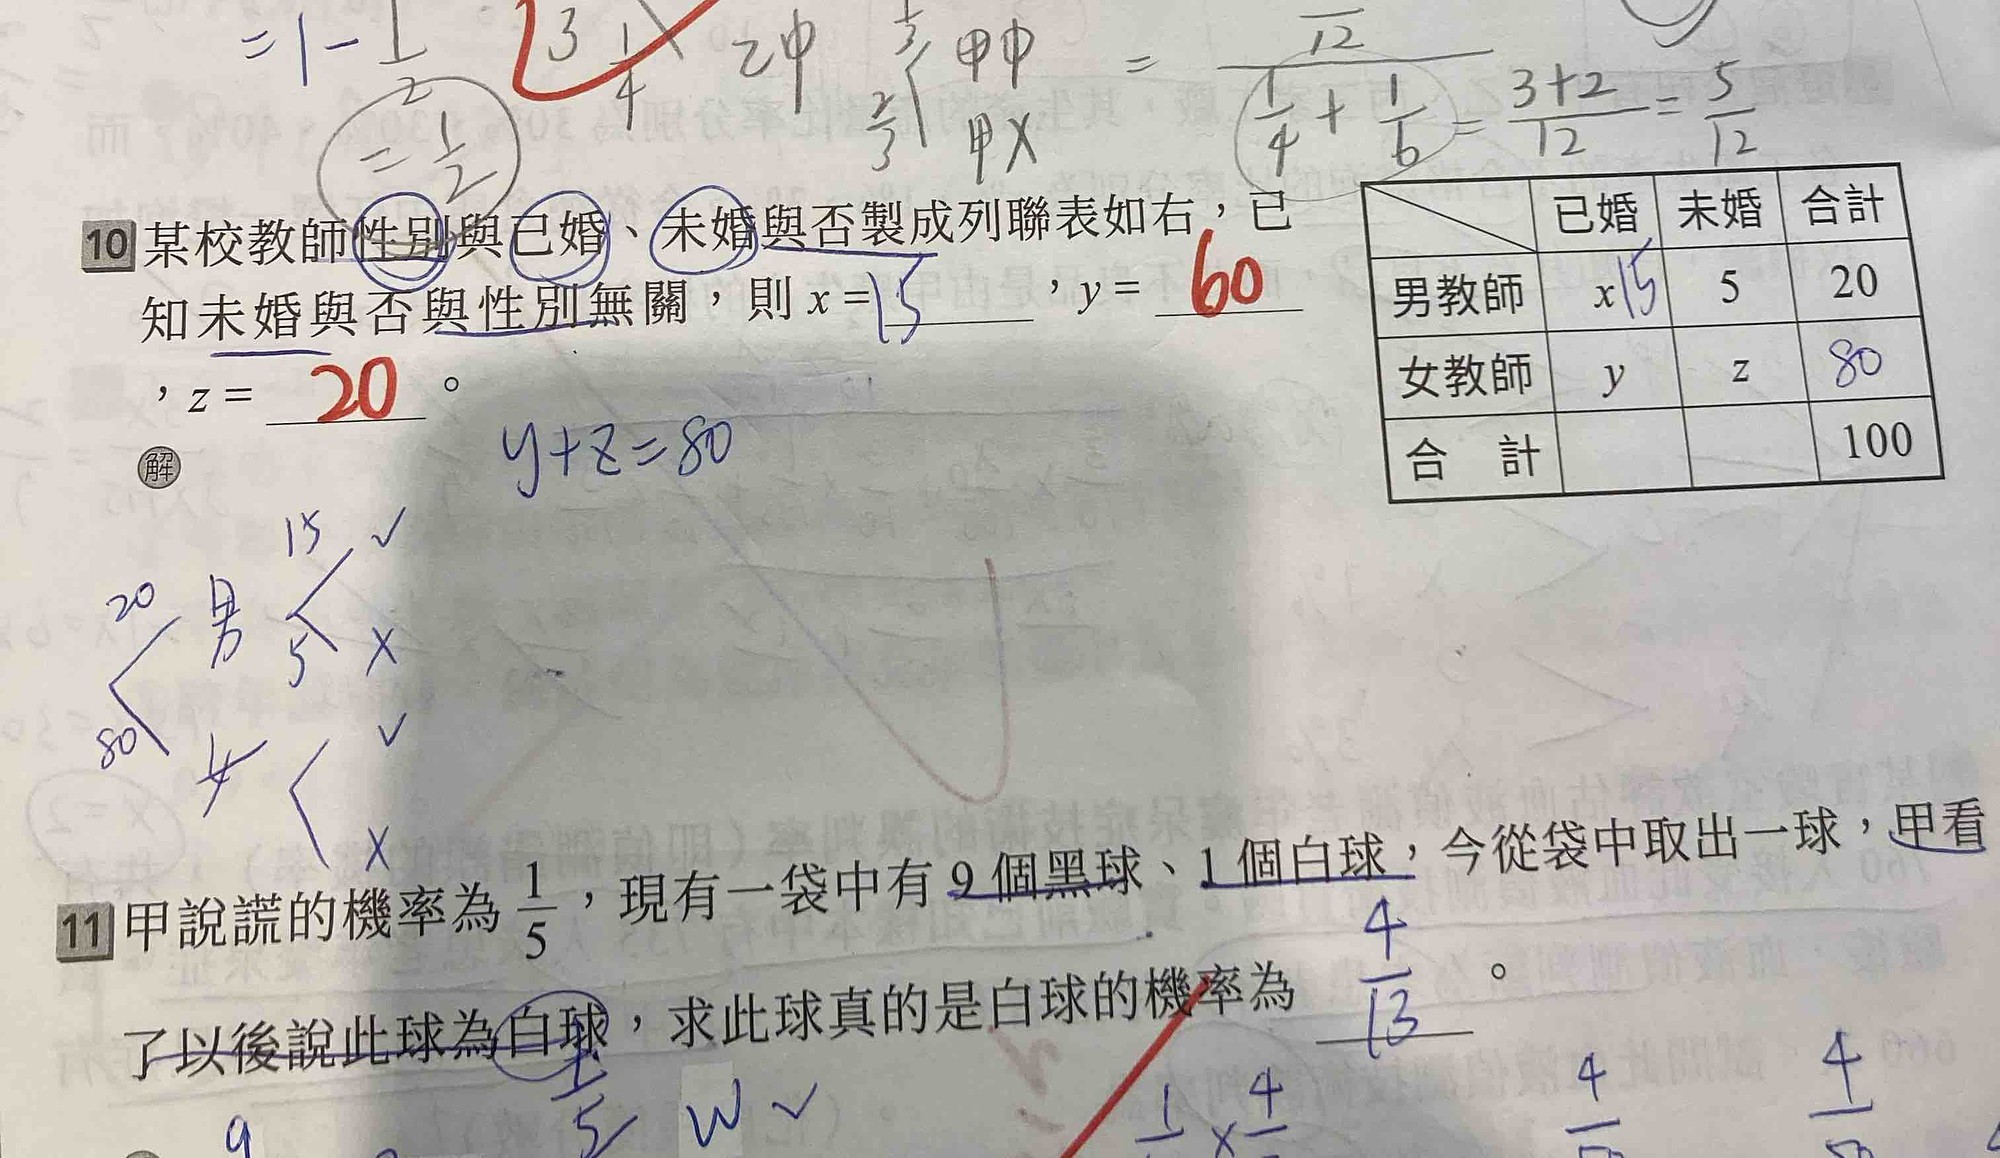 = 1 - 1/2
= 1/2
3 1/4 乙中
1/3 甲中
2/3 甲X
= 12
1/4 + 1/6 = 3+2/12 = 5/12
10 某校教師性別與已婚、未婚與否製成列聯表如右，已
知未婚與否與性別無關，則 x = 15 ，y = 60
，z = 20 。
已婚 未婚 合計
男教師 x 15 5 20
女教師 y z 80
合計 100
解
y+z=80
20 男 15 ✓
5 X
80 女 ✓
X
11 甲說謊的機率為 1/5，現有一袋中有 9 個黑球、1 個白球，今從袋中取出一球，甲看
了以後說此球為白球，求此球真的是白球的機率為 4/13 。
9 1/5 W ✓ 1 × 4 4 4